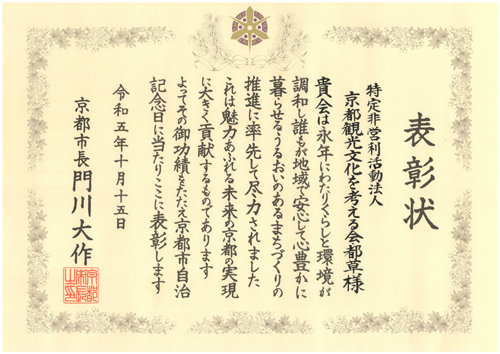 表彰状
特定非営利活動法人
京都観光文化を考える会都草様
貴会は永年にわたりくらしと環境が
調和し誰もが地域で安心して心豊かに
暮らせるうるおいのあるまちづくりの
推進に率先して尽力されました
これは魅力あふれる未来の京都の実現
に大きく貢献するものであります
よってその御功績をたたえ京都市自治
記念日に当たりここに表彰します
令和五年十月十五日
京都市長 門川大作
京都市長之印